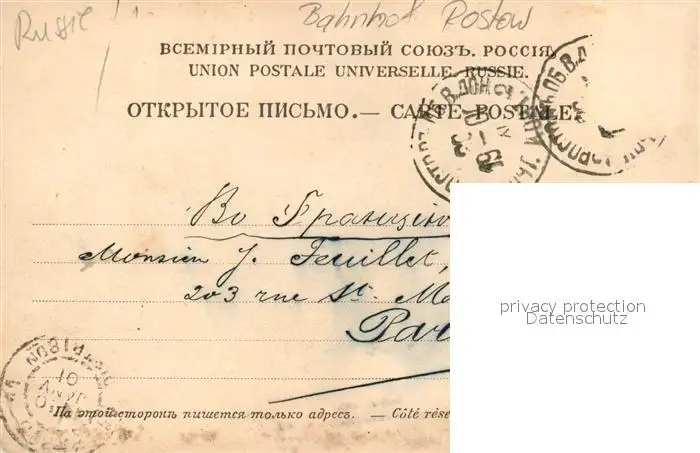 Russie Bahnhof Rostow
ВСЕМІРНЫЙ ПОЧТОВЫЙ СОЮЗЪ. РОССІЯ.
UNION POSTALE UNIVERSELLE. RUSSIE.
ОТКРЫТОЕ ПИСЬМО.— CARTE POSTALE.
Во Францію
Monsieur J. Feuillet,
203 rue St. Ma
Par
privacy protection
Datenschutz
DISTRIBUTION
01
На этой сторонѣ пишется только адресъ. — Côté rése